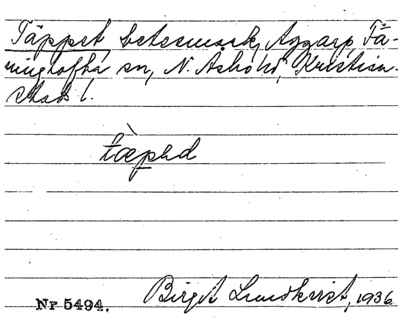 Täppet betesmark, Aggarp, Fä-
ringtofta sn, N. Åsbo hd, Kristian-
stads l.
tæ̀ped
Nr 5494. Birgit Lundkvist, 1936